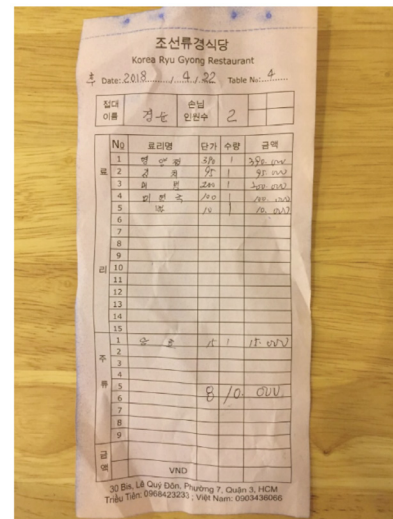 조선류경식당
Korea Ryu Gyong Restaurant
Date: 2018 / 4 / 22 Table No: 4
접대 이름 손님 인원수 2
№ 료리명 단가 수량 금액
료 리
1 390 1 390.000
2 95 1 95.000
3 200 1 200.000
4 100 1 100.000
5 10 1 10.000
6
7
8
9
10
11
12
13
14
15
주 류
1 15 1 15.000
2
3
4
5 810.000
6
7
8
9
금액 VND
30 Bis, Lê Quý Đôn, Phường 7, Quận 3, HCM
Triều Tiên: 0968423233 ; Việt Nam: 0903436066